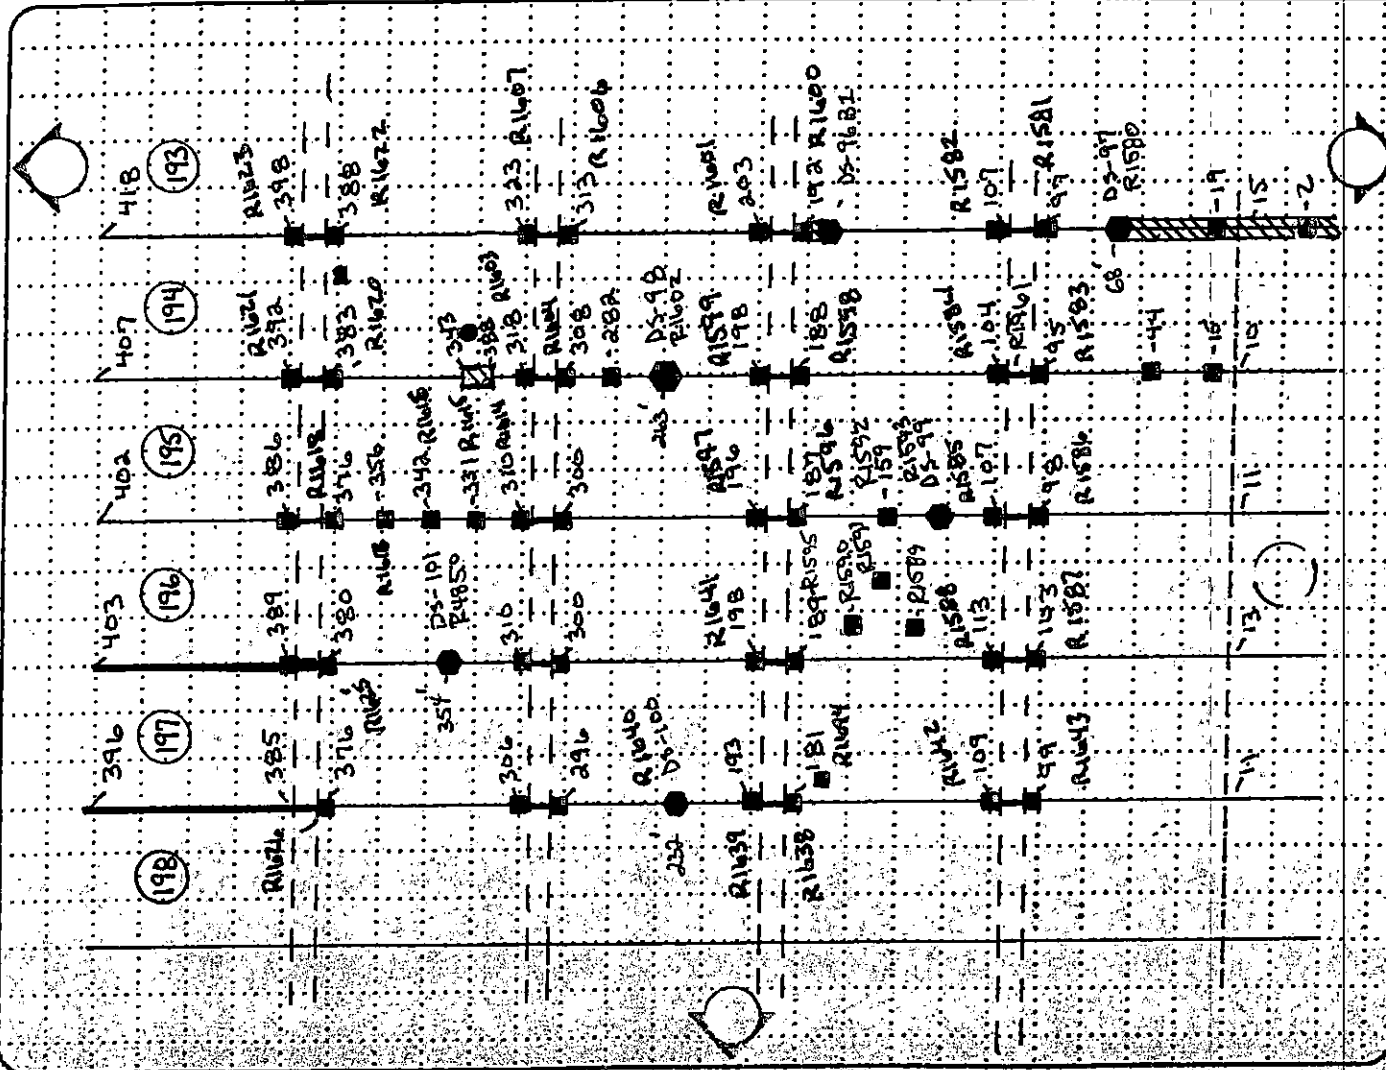 418
193
R1623
398
388
R1622
323 R1607
313 R1606
R1601
203
192 R1600
DS-96B1
R1582
107
97 R1581
DS-97
R1580
68'
-19
15
-2
407
194
R1621
392
383
R1620
343
338
R1603
318
R1604
308
-282
DS-98
R1602
263'
R1599
198
188
R1598
R1584
104
95
R1583
-44
-18
10
402
195
386
R1618
376
-356
-342 R1615
310 R1614
300
R1597
196
187
R1596
R1592
-159
R1593
DS-99
R1585
-107
98
R1586
11
403
196
389
380
DS-101
R4850
354'
310
300
R1641
198
189 R1595
-R1590
R1591
-R1589
R1588
113
103
R1587
13
396
197
385
376
R1625
306
296
R1640
DS-100
232'
193
181
R1694
R1642
109
99
R1643
11
198
R1626
R1639
R1638